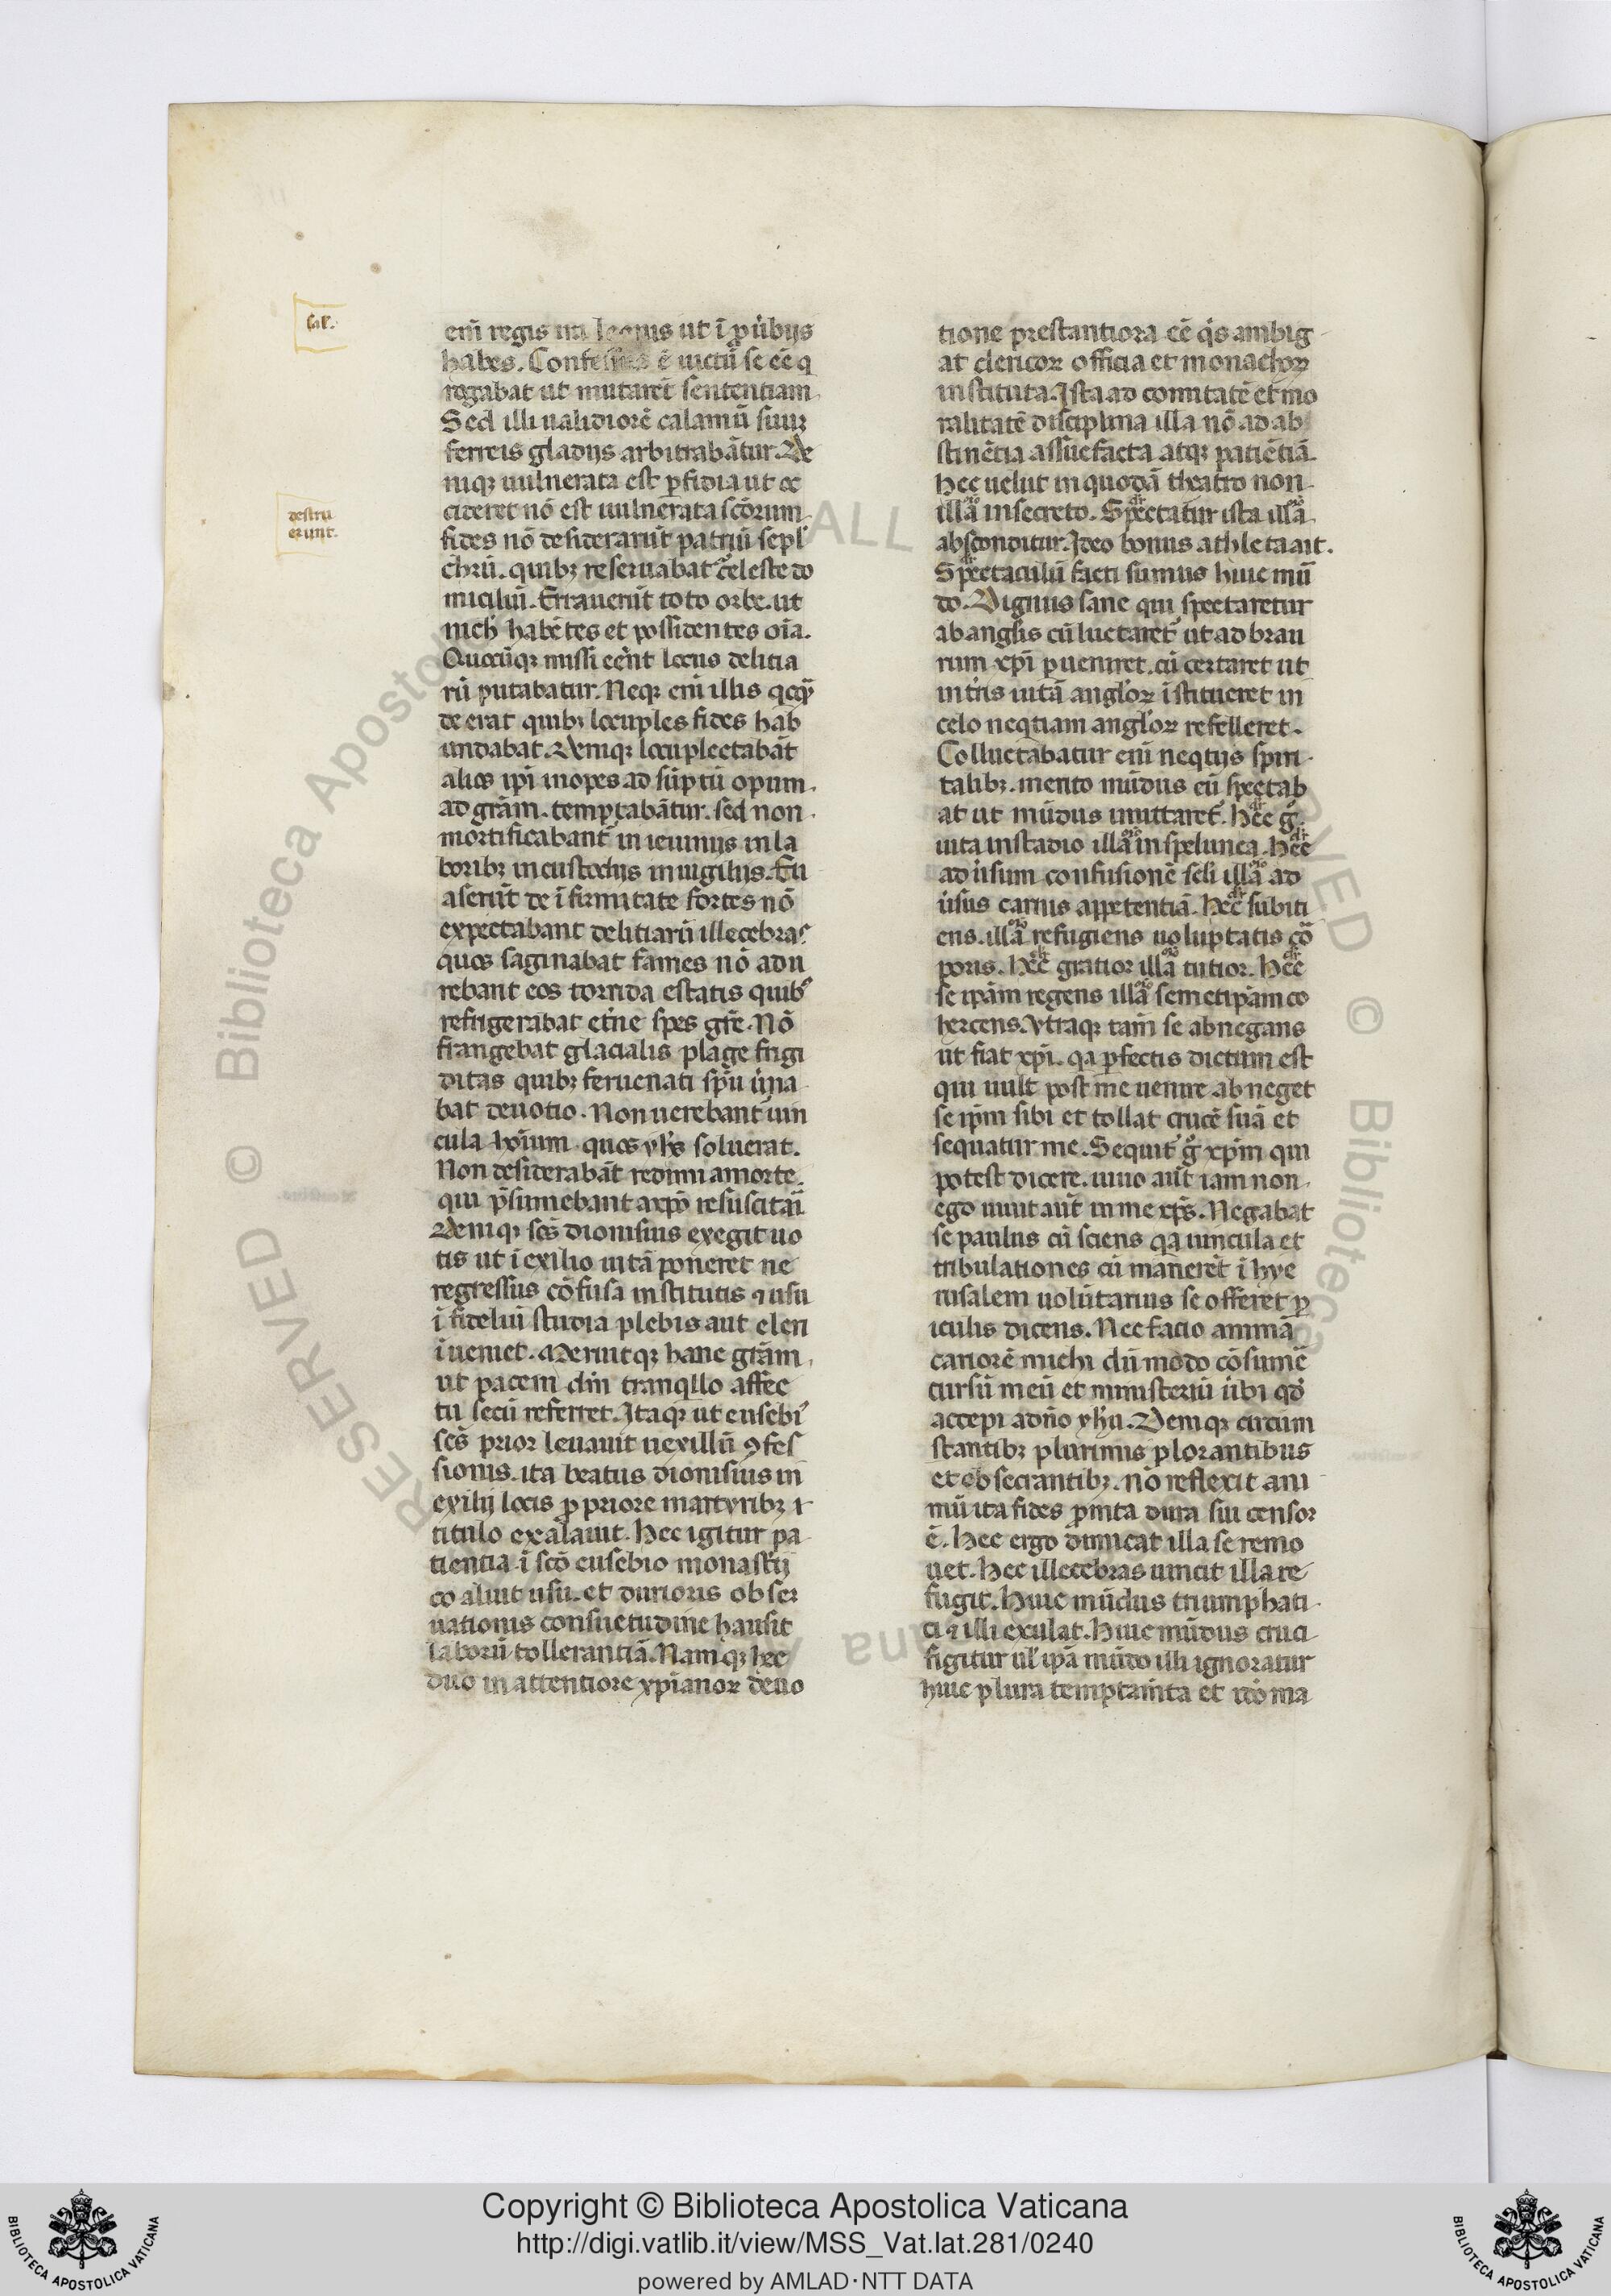 sal'.
destru
erunt.
em̄ regis ut ī ꝓuībijs
habes. ē uictū se eē q
rogabat ut mutarēt sententiam
Sed illi ualidiorē calamū suuꝫ
ferreis gladijs arbitrabātur. De
niqꝫ uulnerata est ꝑfidia ut oc
cideret nō est uulnerata scōrum
fides nō desiderarūt patriū sepl'
chrū. quibꝫ reseruabat᷑ celeste do
miciliū. Errauerūt toto orbe. ut
nich' habētes et possidentes oīa.
Quocūqꝫ missi eēnt locus delitia
rū putabatur. Neqꝫ enī illis qcq̄
deerat quibꝫ locuples fides hab
undabat. Deniqꝫ locuplectabāt
alios ipī inopes ad sūptū opum.
ad grām. temptabātur. sed non
mortificabant᷑ in ieiuniis in la
boribꝫ in custodijs in uigilijs. Eu
aserūt de īfirmitate fortes nō
expectabant delitiarū illecebras
quos saginabat fames nō adu
rebant eos torrida estatis quibꝰ
refrigerabat et̄ne spes grē. Nō
frangebat glacialis plage frigi
ditas quibꝫ feruenati spū
bat deuotio. Non uerebant᷑ uin
cula hoīum quos yh̄s soluerat.
Non desiderabāt redimi a morte.
qui p̄sumebant a xp̄o resuscitari
Deniqꝫ scs̄ dionisius exegit uo
tis ut ī exilio uitā poneret ne
regressus cōfusa institutis ⁊ usu
īfideliū studia plebis aut cleri
īueniet. Meruitqꝫ hanc grām
ut pacem dn̄i tranqllo affec
tu secū referret. Itaqꝫ ut eusebiꝰ
scs̄ prior leuauit uexillū ꝯfes
sionis. ita beatus dionisius in
exilij locis ꝓ priore martyribꝫ
titulo exalauit. Hec igitur pa
tientia ī scō eusebio monast̄ij
coaluit usu. et durioris obser
uationis consuetudine hausit
laborū tollerantiā. Namqꝫ hec
duo in attentiore xp̄ianoꝝ deuo
tione prestantiora eē q's ambig
at clericoꝝ officia et monachoꝝ
instituta. Ista ad comitatē et mo
ralitatē disciplina illa nō ad ab
stinētia assuefacta atqꝫ patiētiā.
Hec uelut in quodā theatro non
illā in secreto. Spectatur ista illā
absconditur. Ideo bonus athleta ait.
Spectaculū facti sumus huic mū
do. Dignus sane qui spectaretur
ab anglis cū luctaret᷑ ut ad braui
um xp̄i ꝑueniret. cū certaret ut
in t'ris uitā angloꝝ īstitueret in
celo neqtiam angloꝝ refelleret.
Colluctabatur enī neqtijs spiri
talibꝫ. merito mūdus eū spectab
at ut mūdus imittaret᷑. Hec g̅.
uita in stadio illā in spelunca. Hec
aduīsum confusionē secli illā ad
uīsus carnis appetentiā. Hec subiti
ens. illā refugiens uoluptatis cō
poris. Hec gratior illā tutior. Hec
se ipām regens illā semetipām co
hercens. Vtraqꝫ tam̄ se abnegans
ut fiat xp̄i. qa ꝑfectis dictum est
qui uult post me uenire abneget
se ip̄m sibi et tollat crucē suā et
sequatur me. Sequit᷑ g̅ xp̄m qui
potest dicere. uiuo aūt iam non
ego uiuit aūt in me xp̄s. Negabat
se paulus cū sciens qa uincula et
tribulationes cū manerēt ī hye
rusalem uolūtarius se offeret ꝑ
iculis dicens. Nec facio animā
cariorē michi dū modo cōsumē
cursū meū et ministeriū ūbi qd̄
accepi a dn̄o yh̄u. Deniqꝫ circum
stantibꝫ plurimis plorantibus
et obsecrantibꝫ. nō reflexit ani
mū ita fides ꝓmta dura sui censor
ē. Hec ergo dimicat illa se remo
uet. Hec illecebras uincit illa re
fugit. Huic mūdus triumphati
ci ⁊ illi exulat. Huic mūdus cruci
figitur ul' ipā mūdo illi ignoratur
huic plura temptam̄ta et ido ma
Copyright © Biblioteca Apostolica Vaticana
http://digi.vatlib.it/view/MSS_Vat.lat.281/0240
powered by AMLAD·NTT DATA